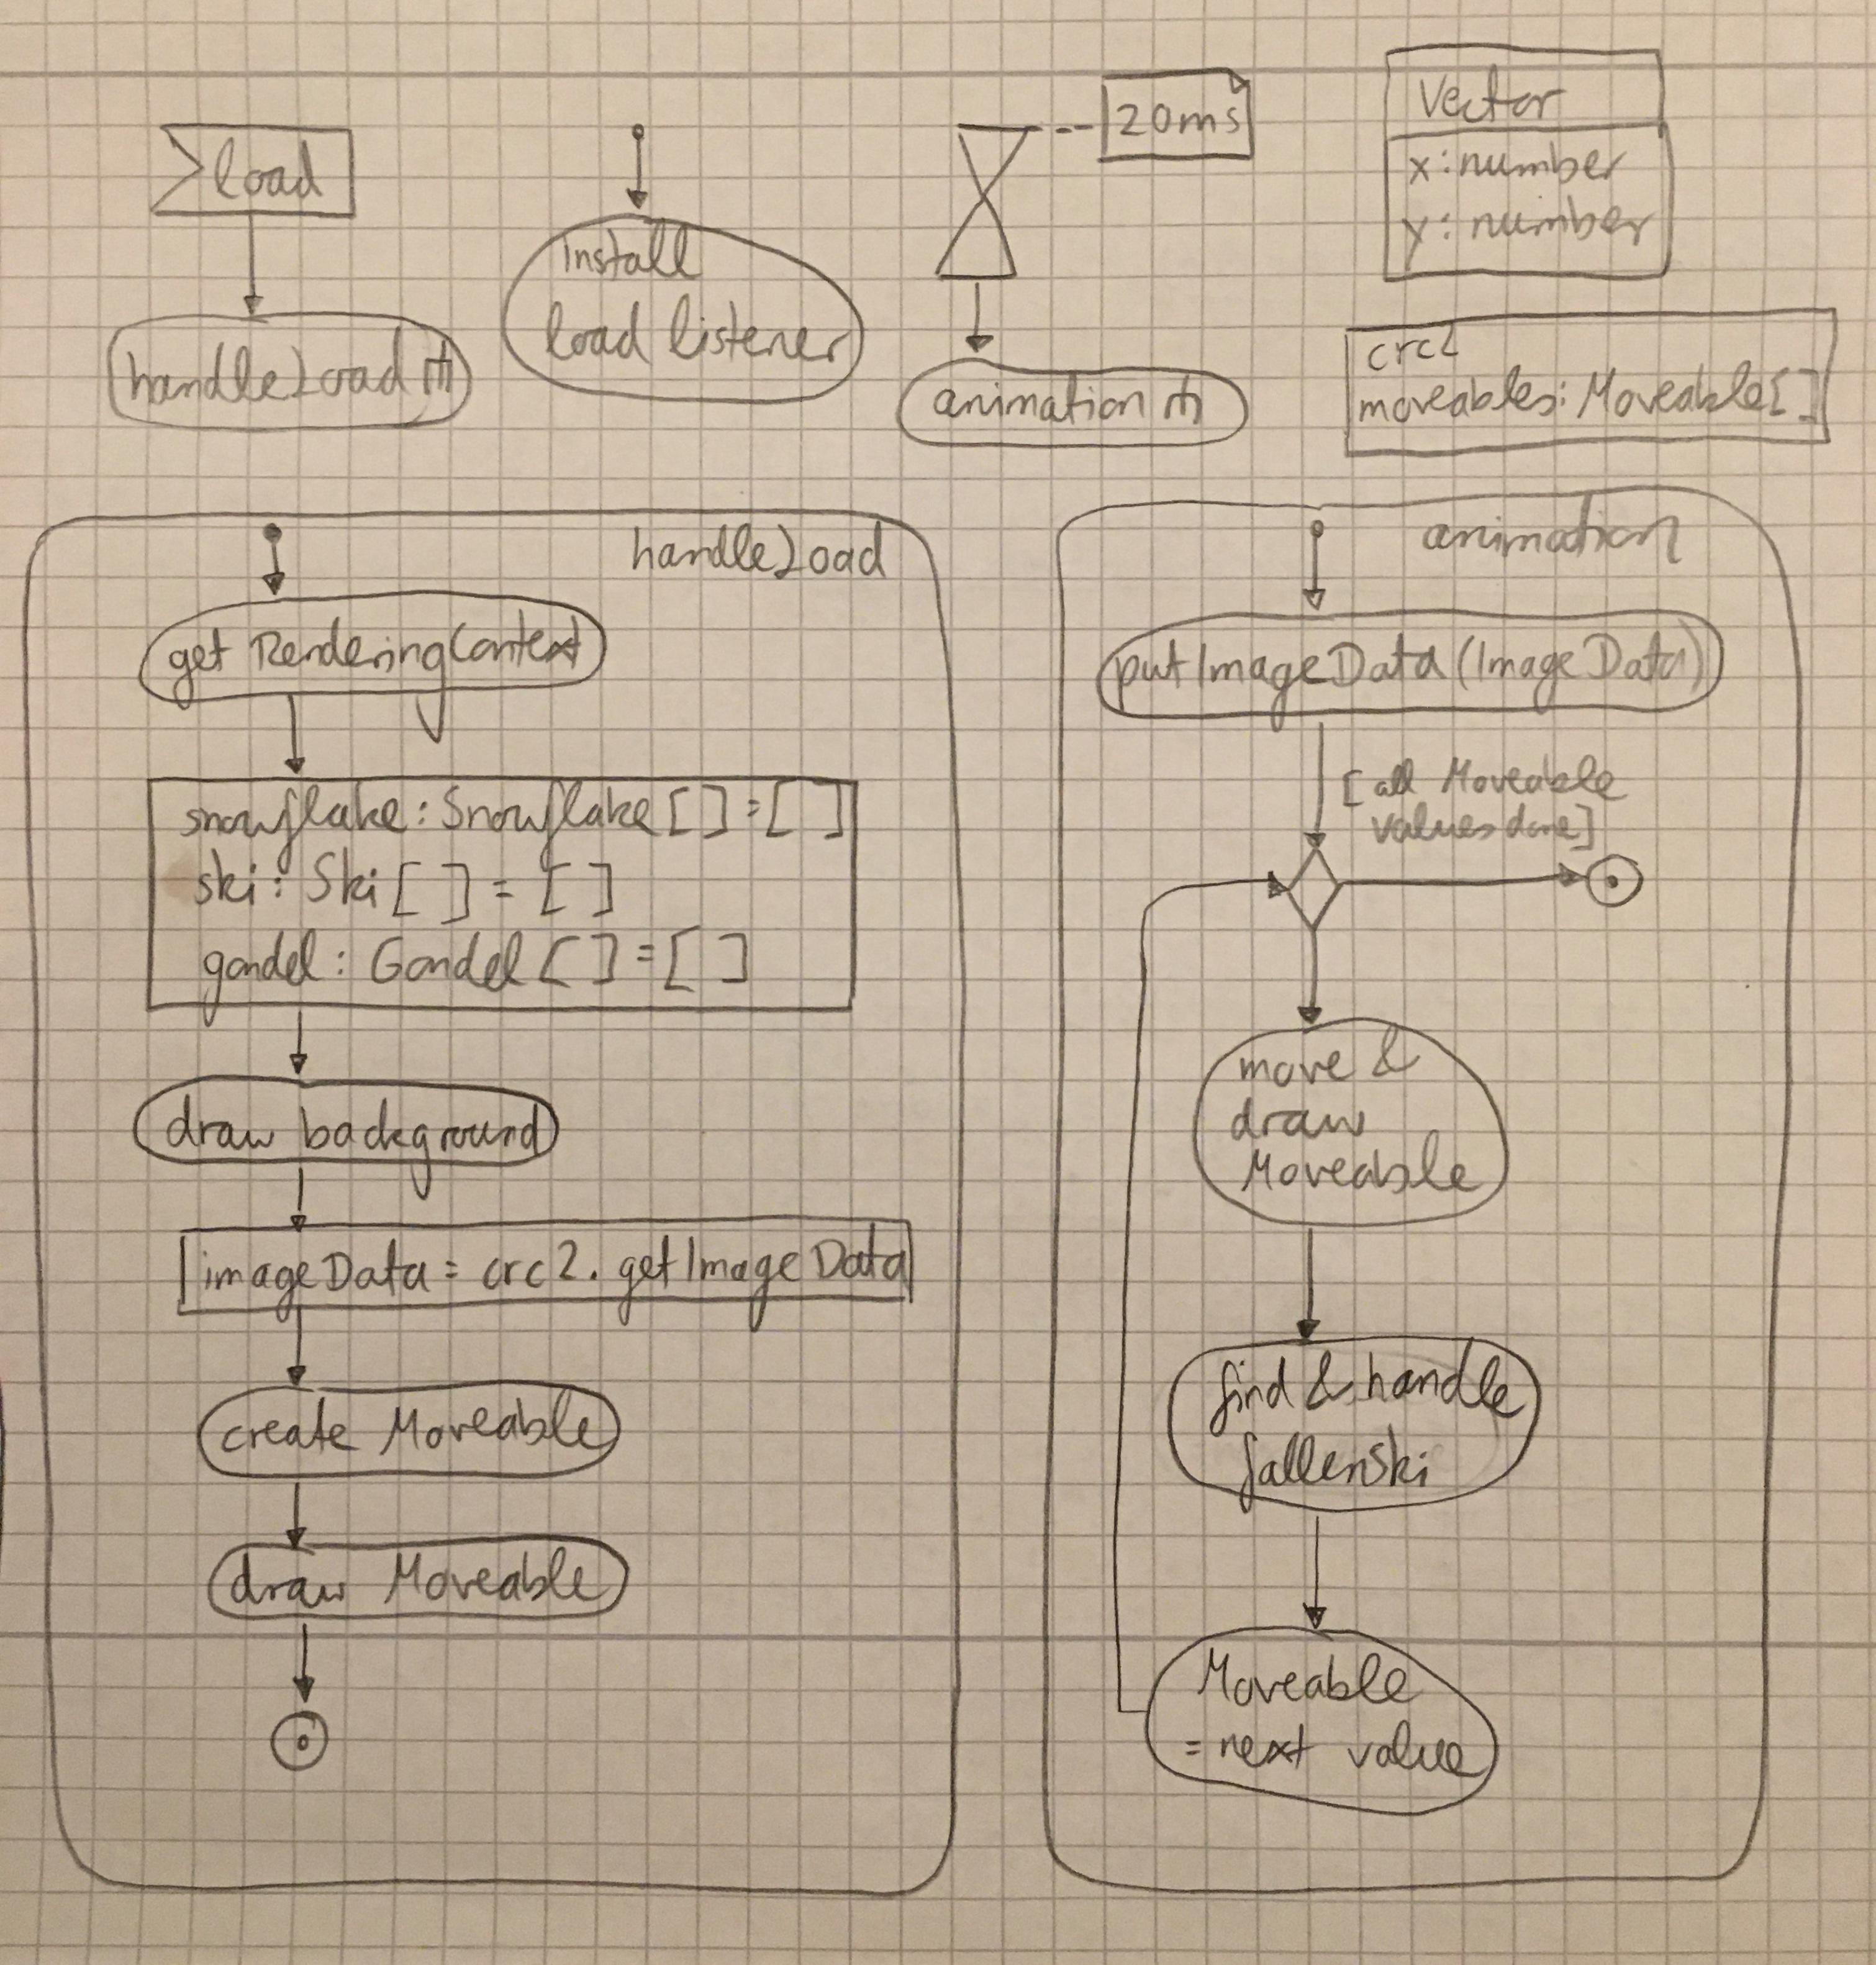 load
handleLoad
Install
load listener
20ms
animation
Vector
x: number
y: number
crc2
moveables: Moveable[]
handleLoad
get RenderingContext
snowflake: Snowflake[] = []
ski: Ski[] = []
gondel: Gondel[] = []
draw background
imageData = crc2.getImageData
create Moveable
draw Moveable
animation
putImageData(ImageData)
[all Moveable
values done]
move &
draw
Moveable
find & handle
fallenSki
Moveable
= next value